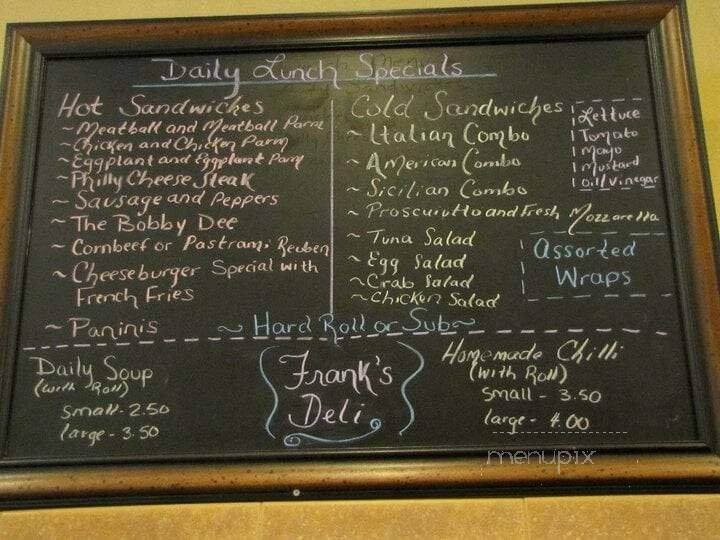 Daily Lunch Specials
Hot Sandwiches
~ Meatball and Meatball Parm
~ Chicken and Chicken Parm
~ Eggplant and Eggplant Parm
~ Philly Cheese Steak
~ Sausage and Peppers
~ The Bobby Dee
~ Cornbeef or Pastrami Reuben
~ Cheeseburger Special with
French Fries
~ Paninis
Cold Sandwiches
~ Italian Combo
~ American Combo
~ Sicilian Combo
~ Proscuiutto and Fresh Mozzarella
~ Tuna Salad
~ Egg Salad
~ Crab Salad
~ Chicken Salad
Lettuce
Tomato
Mayo
Mustard
oil/vinegar
Assorted
Wraps
~ Hard Roll or Sub ~
Daily Soup
(with Roll)
small - 2.50
large - 3.50
Frank's
Deli
Homemade Chilli
(with Roll)
small - 3.50
large - 4.00
menupix